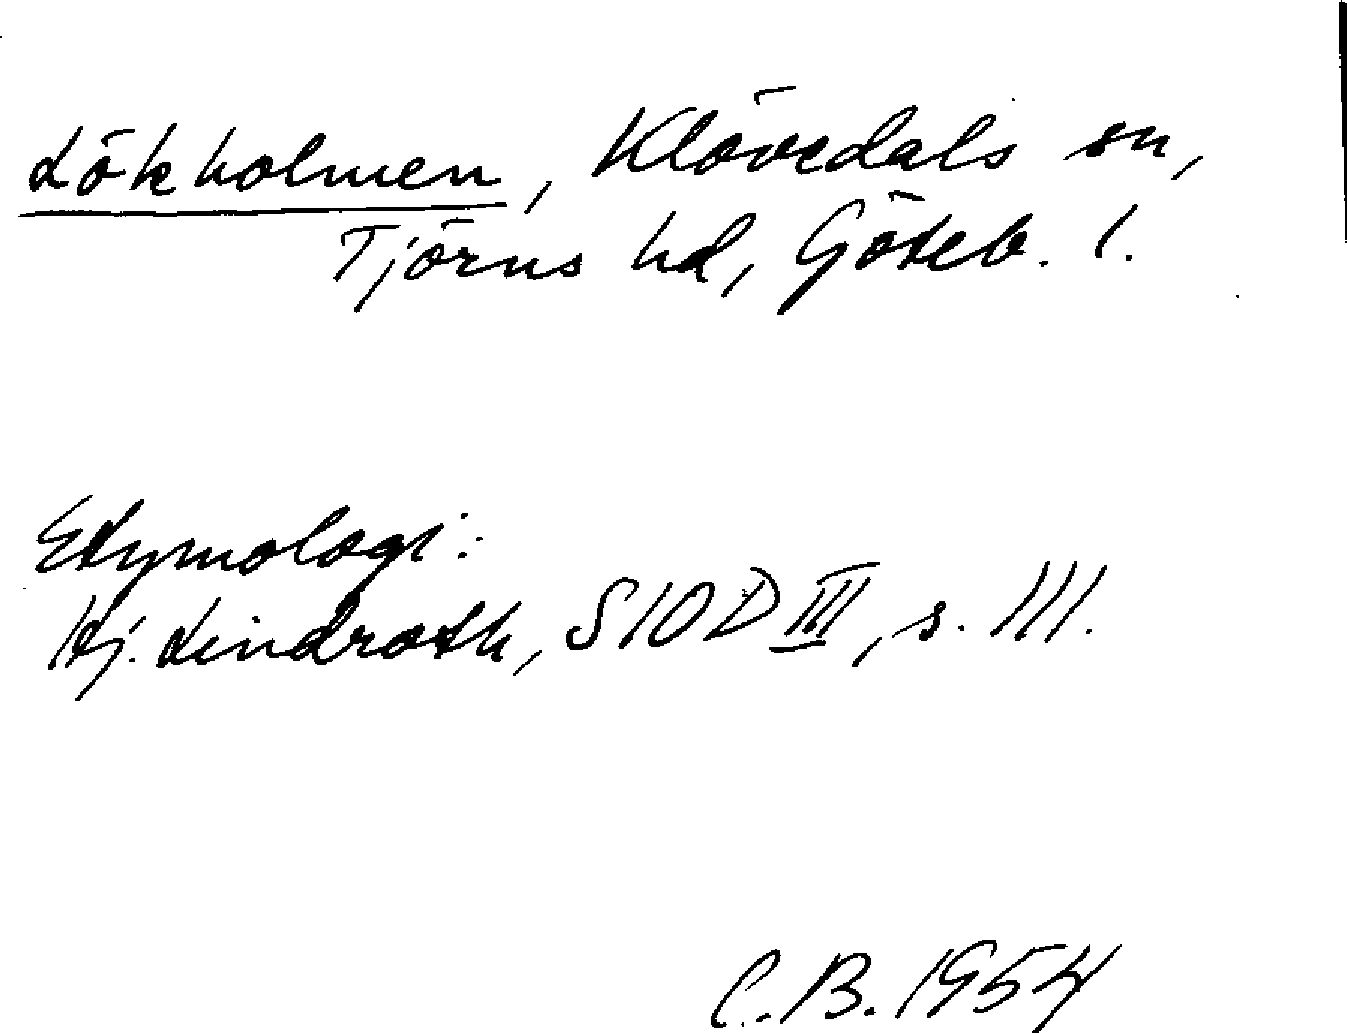 Lökholmen, Klövedals sn,
Tjörns hd, Göteb. l.
Etymologi:
Hj. Lindroth, SIOD III, s. 111.
C.B. 1954